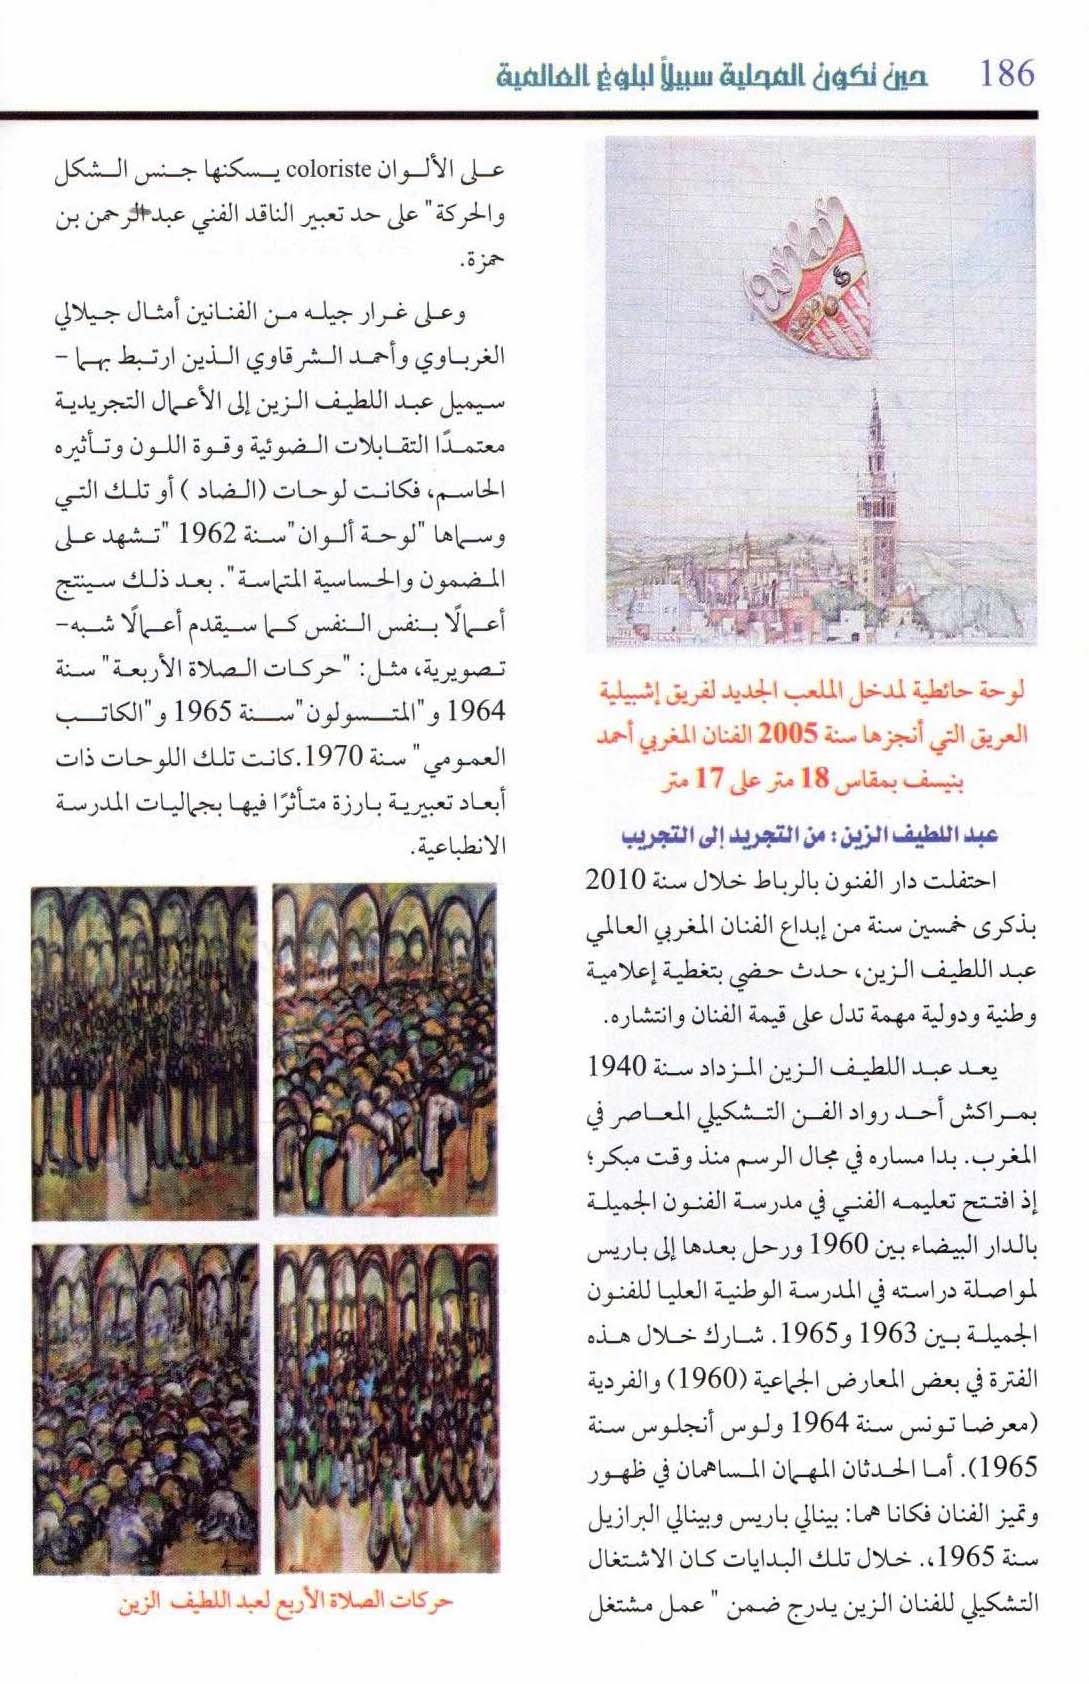 186 حين تكون المحلية سبيلاً لبلوغ العالمية
لوحة حائطية لمدخل الملعب الجديد لفريق إشبيلية
العريق التي أنجزها سنة 2005 الفنان المغربي أحمد
بنيسف بمقاس 18 متر على 17 متر
عبد اللطيف الزين: من التجريد إلى التجريب
احتفلت دار الفنون بالرباط خلال سنة 2010
بذكرى خمسين سنة من إبداع الفنان المغربي العالمي
عبد اللطيف الزين، حدث حضي بتغطية إعلامية
وطنية ودولية مهمة تدل على قيمة الفنان وانتشاره.
يعد عبد اللطيف الزين المزداد سنة 1940
بمراكش أحد رواد الفن التشكيلي المعاصر في
المغرب. بدا مساره في مجال الرسم منذ وقت مبكر؛
إذ افتتح تعليمه الفني في مدرسة الفنون الجميلة
بالدار البيضاء بين 1960 ورحل بعدها إلى باريس
لمواصلة دراسته في المدرسة الوطنية العليا للفنون
الجميلة بين 1963 و1965. شارك خلال هذه
الفترة في بعض المعارض الجماعية (1960) والفردية
(معرضا تونس سنة 1964 ولوس أنجلوس سنة
1965). أما الحدثان المهمان المساهمان في ظهور
وتميز الفنان فكانا هما: بينالي باريس وبينالي البرازيل
سنة 1965،. خلال تلك البدايات كان الاشتغال
التشكيلي للفنان الزين يدرج ضمن " عمل مشتغل
على الألوان coloriste يسكنها جنس الشكل
والحركة" على حد تعبير الناقد الفني عبد الرحمن بن
حمزة.
وعلى غرار جيله من الفنانين أمثال جيلالي
الغرباوي وأحمد الشرقاوي الذين ارتبط بهما -
سيميل عبد اللطيف الزين إلى الأعمال التجريدية
معتمدًا التقابلات الضوئية وقوة اللون وتأثيره
الحاسم، فكانت لوحات (الضاد ) أو تلك التي
وسماها "لوحة ألوان"سنة 1962 "تشهد على
المضمون والحساسية المتماسة". بعد ذلك سينتج
أعمالًا بنفس النفس كما سيقدم أعمالًا شبه-
تصويرية، مثل: "حركات الصلاة الأربعة" سنة
1964 و"المتسولون"سنة 1965 و"الكاتب
العمومي" سنة 1970.كانت تلك اللوحات ذات
أبعاد تعبيرية بارزة متأثرًا فيها بجماليات المدرسة
الانطباعية.
حركات الصلاة الأربع لعبد اللطيف الزين